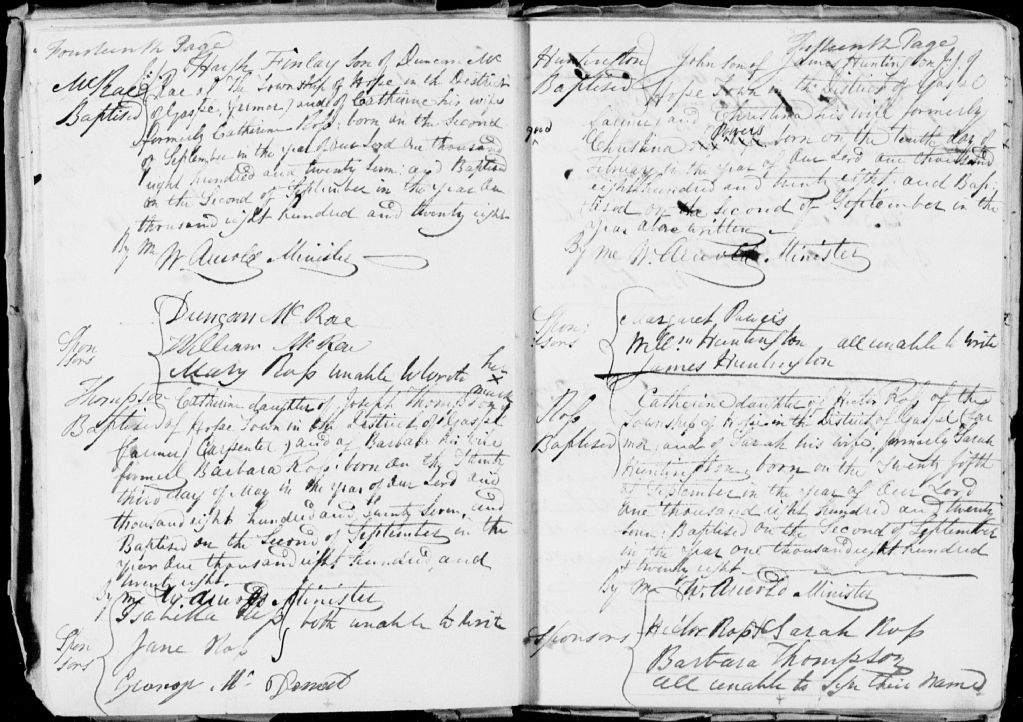 Fourteenth Page
Hugh Finlay Son of Duncan Mc
McRae Rae of the Township of Hope in the District
Baptised of Gaspe, Farmer, and of Catherine his wife
formerly Catherine Ross: born on the Second
of September in the year of our Lord one thousand
eight hundred and twenty Seven: and Baptised
on the Second of September in the year one
thousand eight hundred and twenty eight
By me W. Arnold Minister
Duncan McRae
Spon William McRae
sors Mary Ross unable to write her X mark
Thompson Catherine daughter of Joseph Thompson
Baptised of Hope Town in the District of Gaspe
Carpenter, and of Barbara his wife
formerly Barbara Ross: born on the twenty
third day of May in the year of our Lord one
thousand eight hundred and twenty Seven, and
Baptised on the Second of September in the
year one thousand eight hundred and
twenty eight.
By me W. Arnold Minister
Isabella Ross
both unable to write
Spon Jane Ross
sors George Mc
Fifteenth Page
Huntington John Son of James Huntington
Baptised Hope Town in the District of Gaspe
farmer, and Christina his wife formerly
Christina Powers born on the tenth day of
February in the year of our Lord one thousand
eight hundred and twenty eight: and Bap-
tised on the Second of September in the
year above written
By me W. Arnold Minister
Spon: Margaret Powers
sors Willm Huntington all unable to write
James Huntington
Ross Catherine daughter of Hector Ross of the
Township of Hope in the District of Gaspe Far
Baptised mer, and of Sarah his wife, formerly Sarah
Huntington, born on the Twenty fifth
of September in the year of our Lord
one thousand eight hundred and twenty
Seven: Baptised on the Second of September
in the year one thousand eight hundred
twenty eight
By me W. Arnold Minister
Sponsors Hector Ross X Sarah Ross
Barbara Thompson
all unable to Sign their names